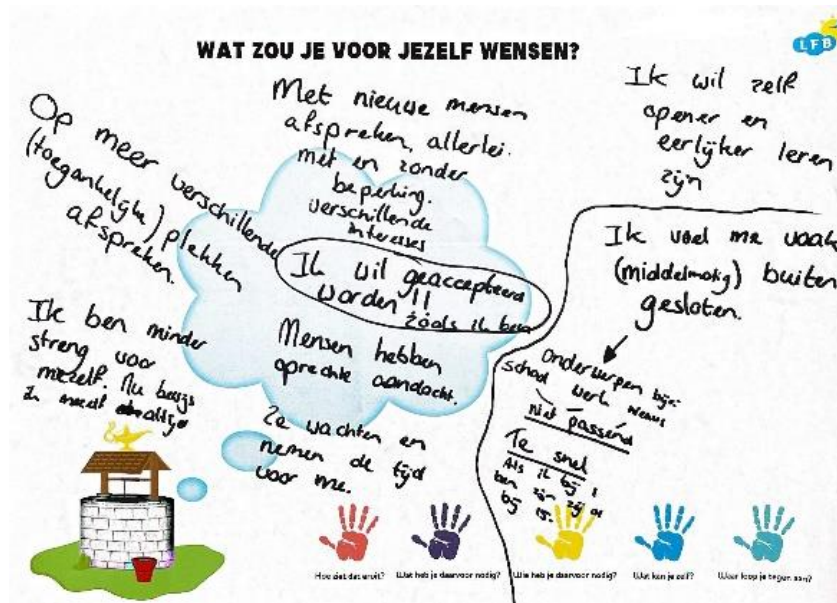 LFB
WAT ZOU JE VOOR JEZELF WENSEN?
Op meer verschillende
(toegankelijke) plekken
afspreken.
Met nieuwe mensen
afspreken, allerlei.
met en zonder
beperking.
verschillende
interesses
Ik wil geaccepteerd
worden!!
zoals ik ben
Mensen hebben
oprechte aandacht.
Ze wachten en
nemen de tijd
voor me.
Ik ben minder
streng voor
mezelf. Nu
Ik mezelf altijd
Ik wil zelf
opener en
eerlijker leren
zijn
Ik voel me vaak
(middelmatig) buiten
gesloten.
onderwerpen bijv:
school werk nieuws
niet passend
Te snel
Als ik bij 1
ben zijn zij al
bij
Hoe ziet dat eruit?
Wat heb je daarvoor nodig?
Wie heb je daarvoor nodig?
Wat kan je zelf?
Waar loop je tegen aan?